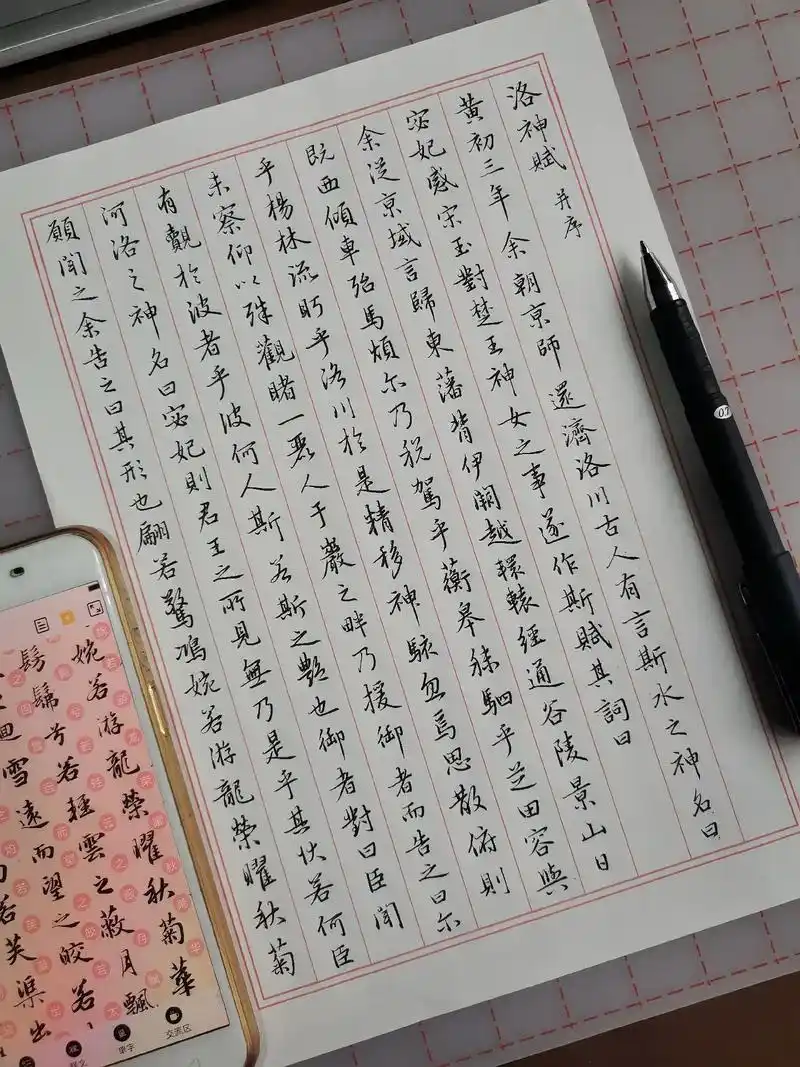 洛神賦 并序
黃初三年余朝京師還濟洛川古人有言斯水之神名曰
宓妃感宋玉對楚王神女之事遂作斯賦其詞曰
余從京域言歸東藩背伊闕越轘轅經通谷陵景山日
既西傾車殆馬煩尓乃稅駕乎蘅皋秣駟乎芝田容與
乎楊林流眄乎洛川於是精移神駭忽焉思散俯則
未察仰以殊觀睹一麗人于巖之畔乃援御者而告之曰尓
有覿於波者乎波何人斯若斯之艷也御者對曰臣聞
河洛之神名曰宓妃則君王之所見無乃是乎其伏若何臣
願聞之余告之曰其形也翩若驚鴻婉若游龍榮曜秋菊
婉若游龍榮曜秋菊華
髣髴兮若輕雲之蔽月飄
迴雪遠而望之皎若
若芙渠出
單字
交流区
0.7